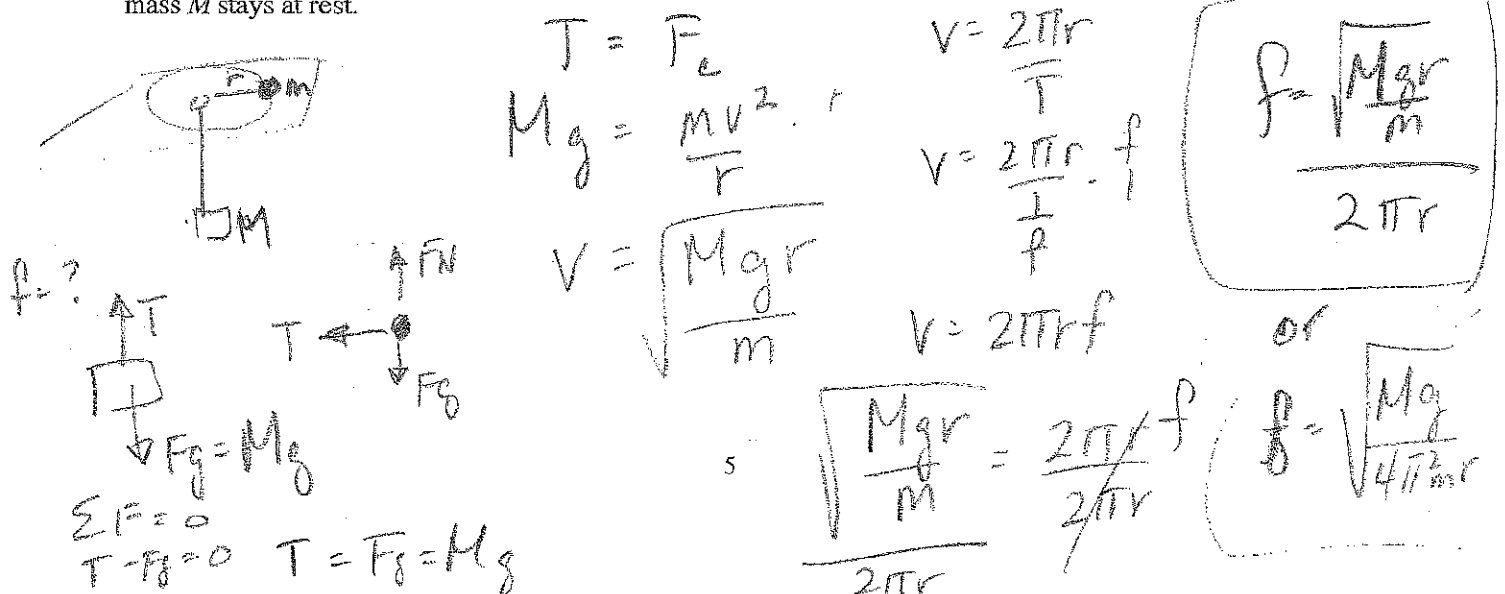 mass M stays at rest.
r m
M
f = ?
T
Fg = Mg
ΣF = 0
T - Fg = 0 T = Fg = Mg
FN
T
Fg
T = Fc
Mg = mv²/r · r
V = √(Mgr/m)
V = 2πr/T
V = 2πr/(1/f) · f/f
V = 2πrf
√(Mgr/m)/2πr = 2πrf/2πr
5
f = √(Mgr/m)/2πr
or
f = √(Mg/4π²mr)